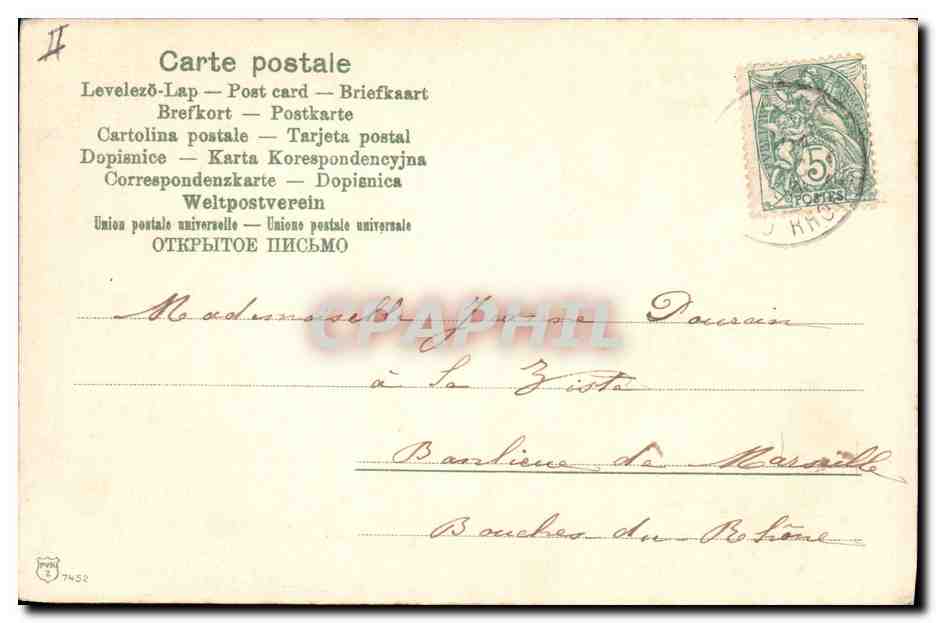 II
Carte postale
Levelező-Lap — Post card — Briefkaart
Brefkort — Postkarte
Cartolina postale — Tarjeta postal
Dopisnice — Karta Korespondencyjna
Correspondenzkarte — Dopisnica
Weltpostverein
Union postale universelle — Unione postale universale
ОТКРЫТОЕ ПИСЬМО
5c
POSTES
RHO
CPAPHIL
Mademoiselle Jeanne Poursin
à la Viste
Banlieue de Marseille
Bouches du Rhône
PVKZ
7452